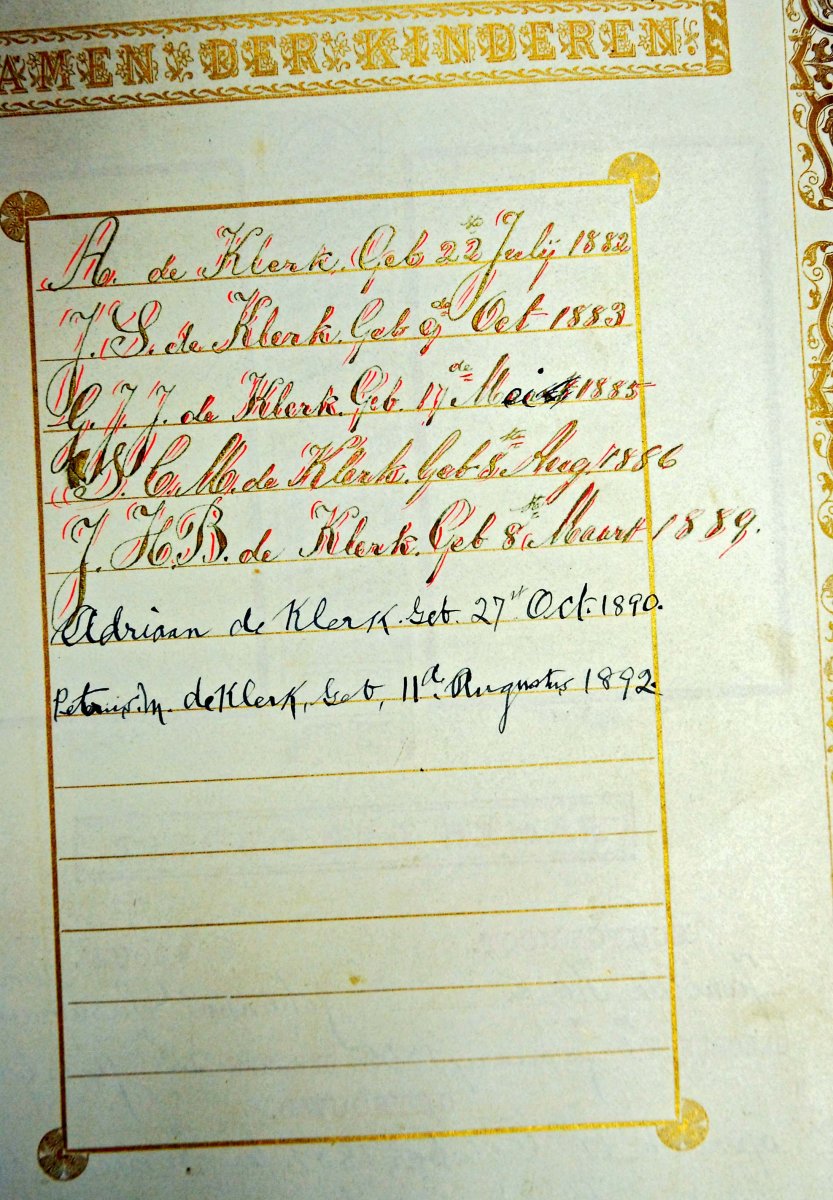 AMEN DER KINDEREN.
A. de Klerk. Geb 22ste Julij 1882
J. S. de Klerk. Geb 9de Oct 1883
G. J. J. de Klerk. Geb. 17de Mei 1885
S. C. M. de Klerk. Geb 8ste Aug 1886
J. H. B. de Klerk. Geb 8ste Maart 1889.
Adriaan de Klerk. Geb. 27st Oct. 1890.
M. de Klerk, Geb, 11de Augustus 1892.